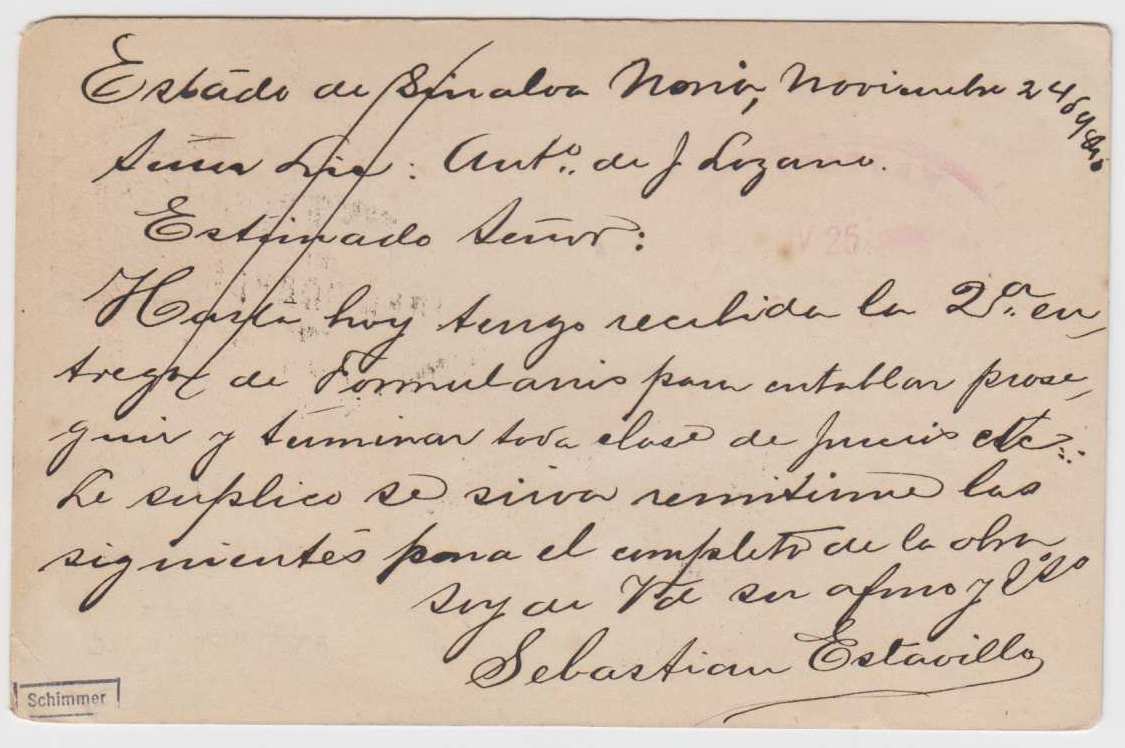 Estado de Sinaloa Noria, Noviembre 24
Señor Lic: Ant.º de J Lozano.
Estimado Señor:
Hasta hoy tengo recibida la 2.ª en,
trega de Formularios para entablar prose,
guir y terminar toda clase de juicios etc..
Le suplico se sirva remitirme las
siguientes para el completo de la obra
Soy de Vd su afmo y S.S.
Sebastian Estavillo
V 25
Schimmer